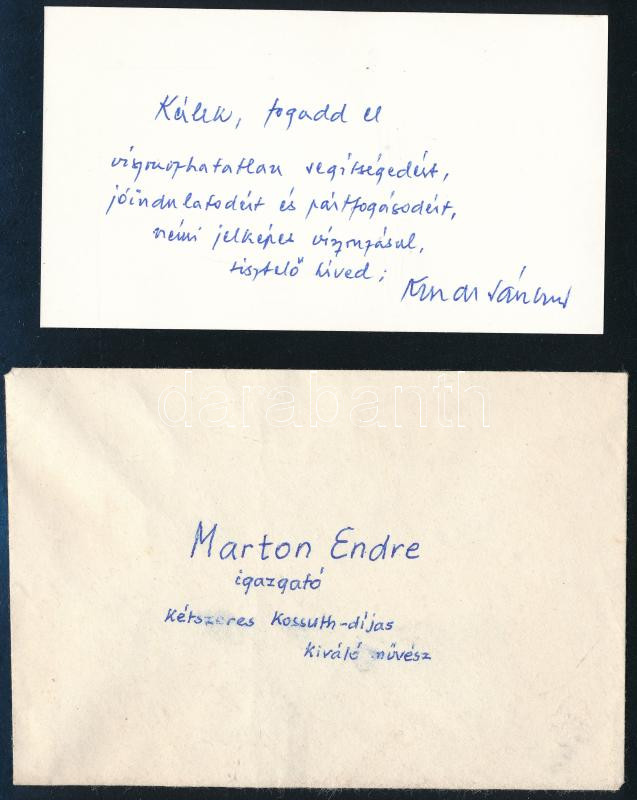 Kérlek, fogadd el
viszonozhatatlan segítségedért,
jóindulatodért és pártfogásodért,
némi jelképes viszonzásul,
tisztelő híved;
darabanth
Marton Endre
igazgató
Kétszeres Kossuth-díjas
Kiváló művész